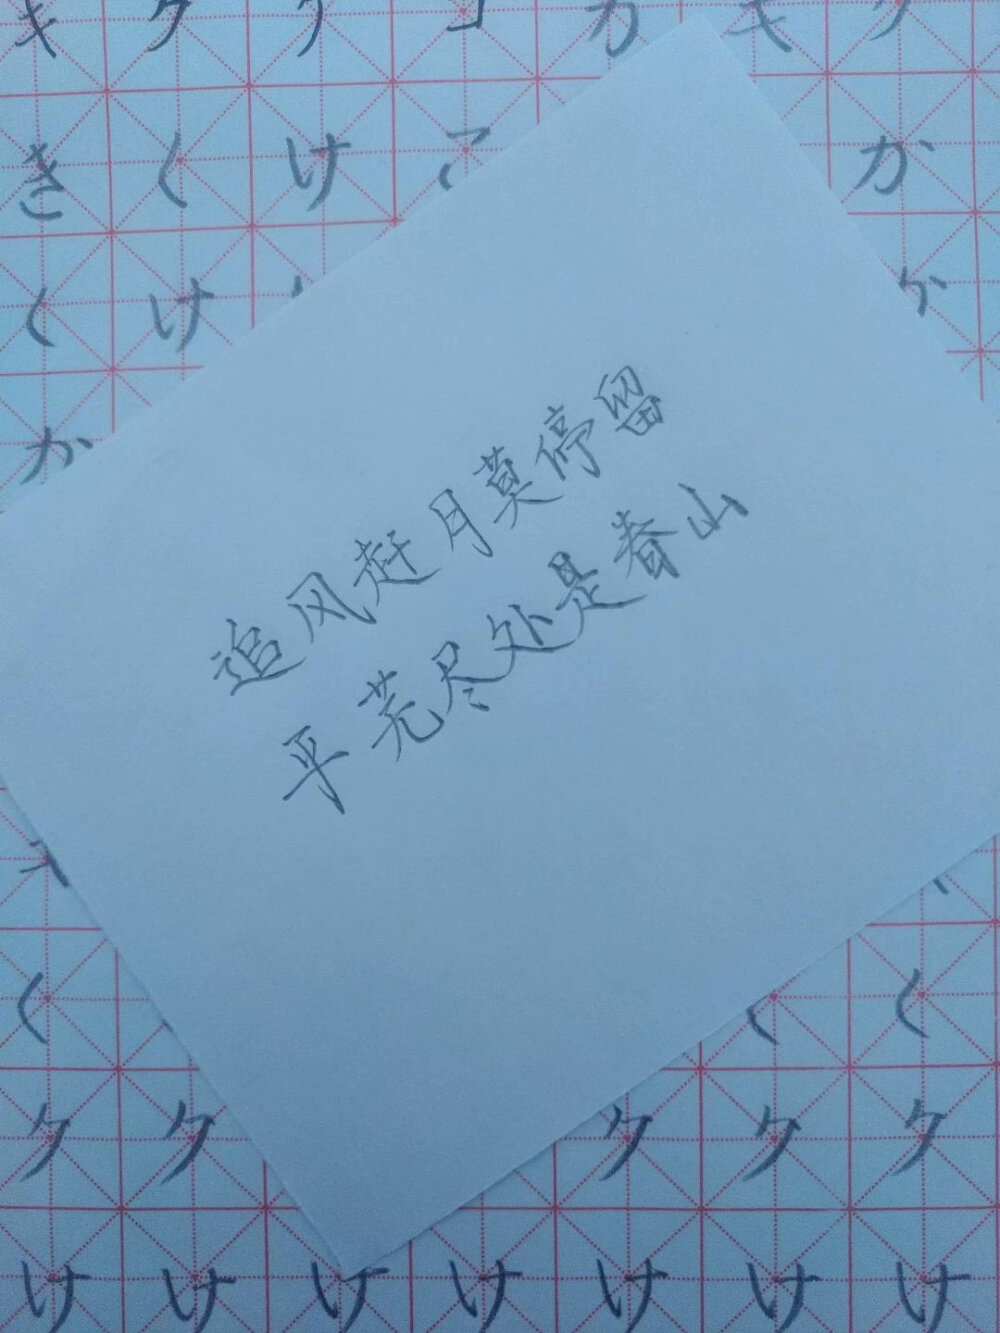 キ ク ク コ カ キ ク
き く け こ か
く け か
か
追风赶月莫停留
平芜尽处是春山
く く く
ク ク ク ク ク
け け け け け け け